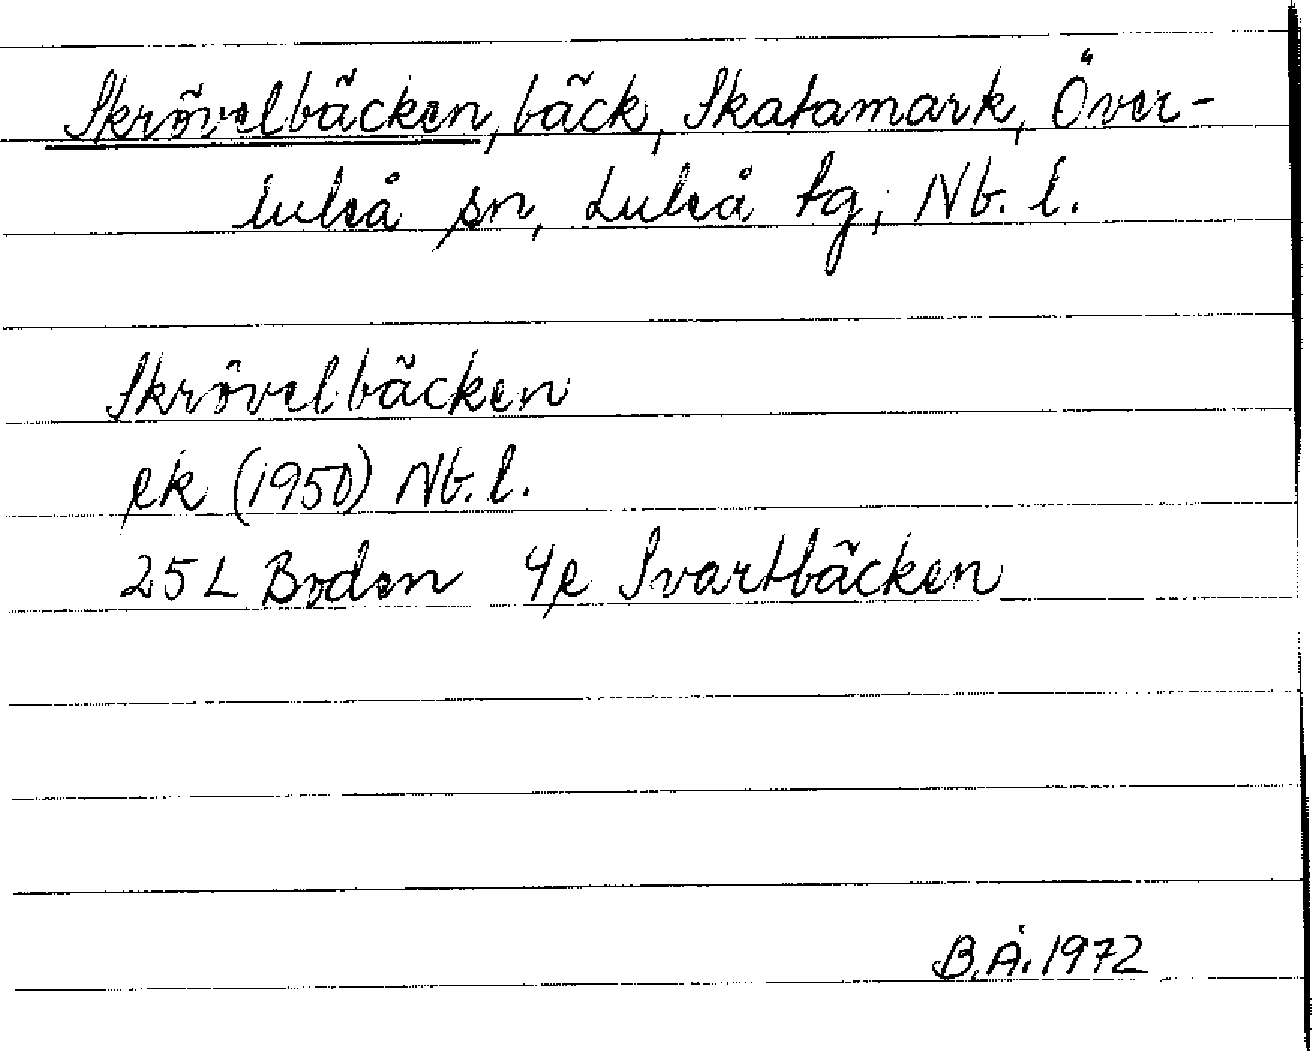 Skrövelbäcken, bäck, Skatamark, Över-
luleå sn, Luleå tg; Nb. l.
Skrövelbäcken
ek (1950) Nb. l.
25 L Boden 4e Svartbäcken
B.Å. 1972